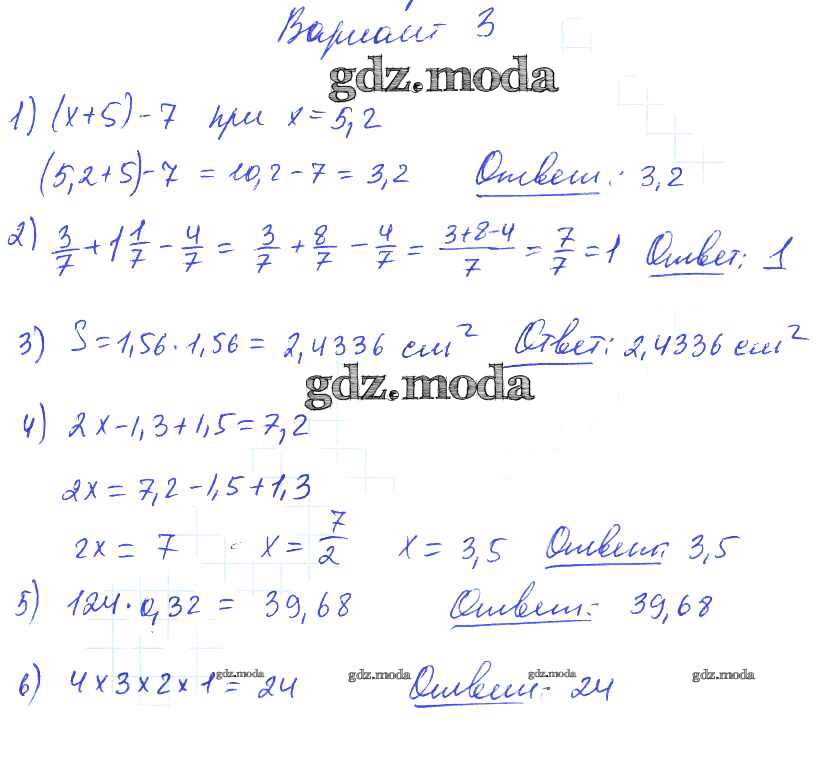 Вариант 3
gdz.moda
1) (x+5)-7 при x=5,2
(5,2+5)-7 = 10,2-7 = 3,2 Ответ: 3,2
2) 3/7 + 1 1/7 - 4/7 = 3/7 + 8/7 - 4/7 = 3+8-4/7 = 7/7 = 1 Ответ: 1
3) S = 1,56 · 1,56 = 2,4336 см² Ответ: 2,4336 см²
gdz.moda
4) 2x-1,3+1,5=7,2
2x = 7,2-1,5+1,3
2x = 7 x = 7/2 x = 3,5 Ответ: 3,5
5) 124 · 0,32 = 39,68 Ответ: 39,68
6) 4 x 3 x 2 x 1 = 24 Ответ: 24
gdz.moda gdz.moda gdz.moda gdz.moda